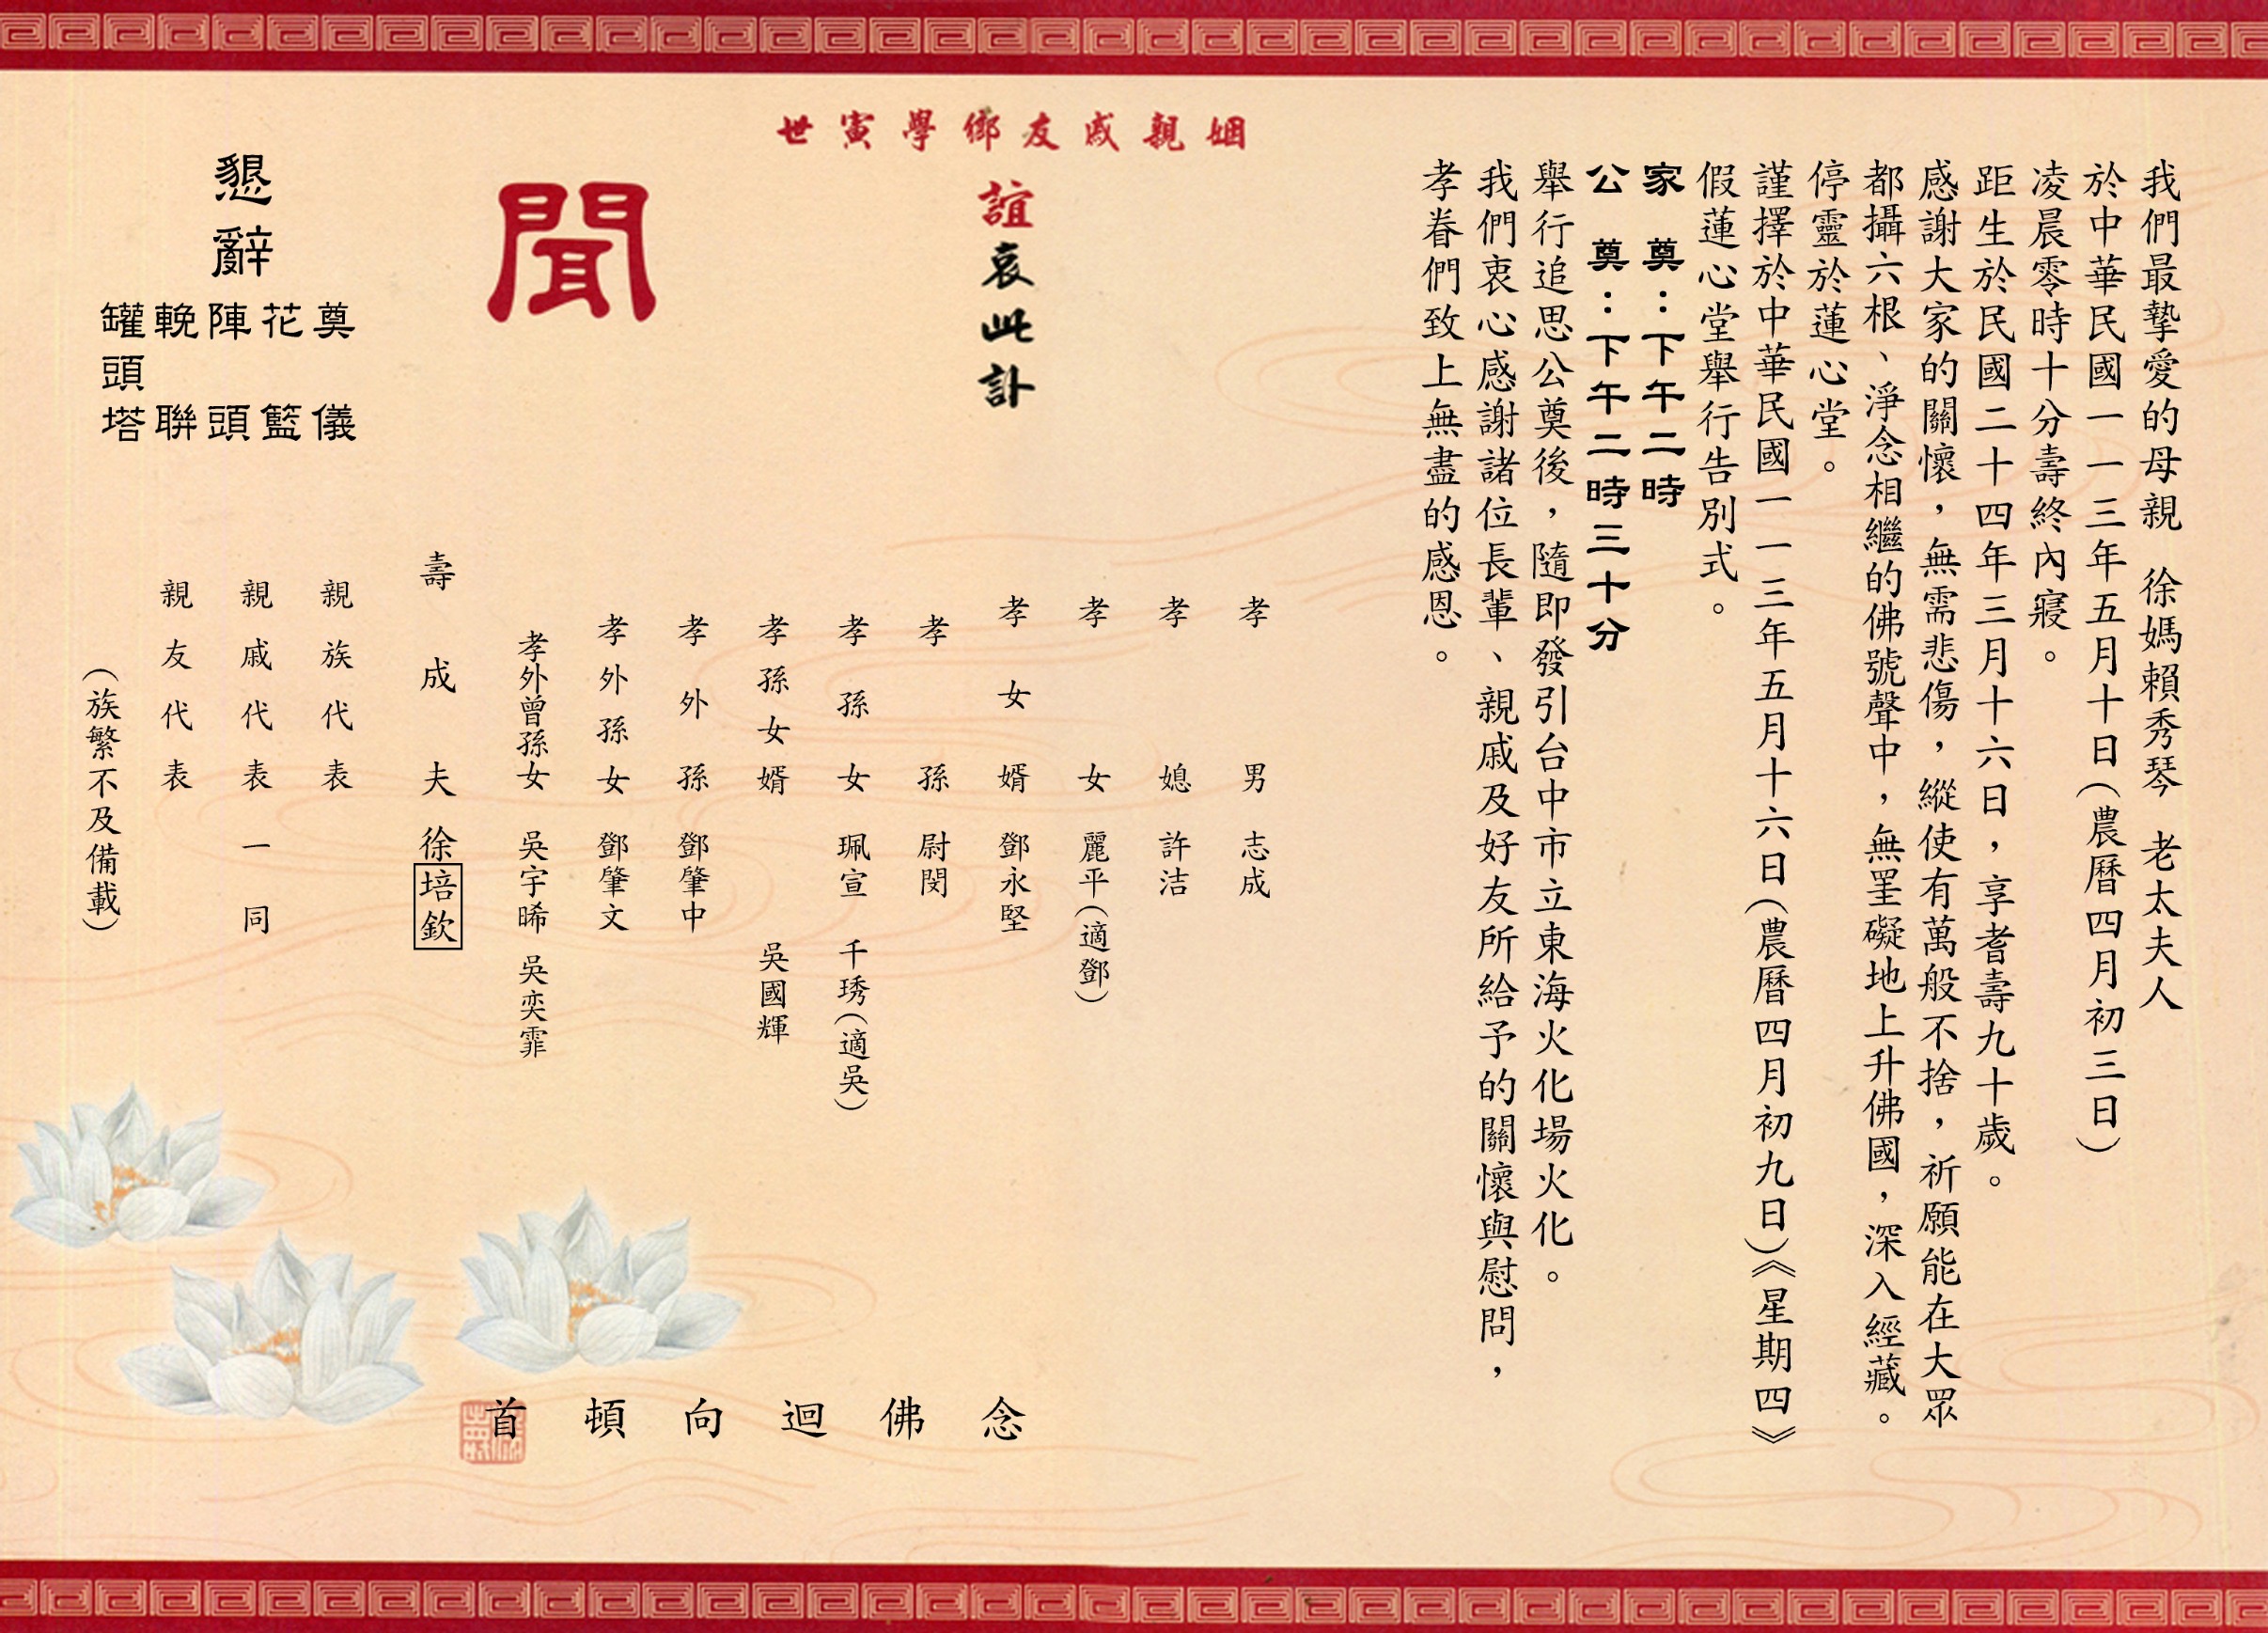 我們最摯愛的母親　徐媽賴秀琴　老太夫人
於中華民國一一三年五月十日(農曆四月初三日)
凌晨零時十分壽終內寢。
距生於民國二十四年三月十六日，享耆壽九十歲。
感謝大家的關懷，無需悲傷，縱使有萬般不捨，祈願能在大眾
都攝六根、淨念相繼的佛號聲中，無罣礙地上升佛國，深入經藏。
停靈於蓮心堂。
謹擇於中華民國一一三年五月十六日(農曆四月初九日)《星期四》
假蓮心堂舉行告別式。
家　奠：下午二時
公　奠：下午二時三十分
舉行追思公奠後，隨即發引台中市立東海火化場火化。
我們衷心感謝諸位長輩、親戚及好友所給予的關懷與慰問，
孝眷們致上無盡的感恩。
姻親戚友鄉學寅世
誼哀此訃
聞
孝男　志成
孝媳　許洁
孝女　麗平(適鄧)
孝女婿　鄧永堅
孝孫　尉閔
孝孫女　珮宣　千琇(適吳)
孝孫女婿　吳國輝
孝外孫　鄧肇中
孝外孫女　鄧肇文
孝外曾孫女　吳宇晞　吳奕霏
壽成夫　徐培欽
懇辭
奠儀
花籃
陣頭
輓聯
罐頭塔
親族代表
親戚代表　一同
親友代表
(族繁不及備載)
念佛迴向頓首